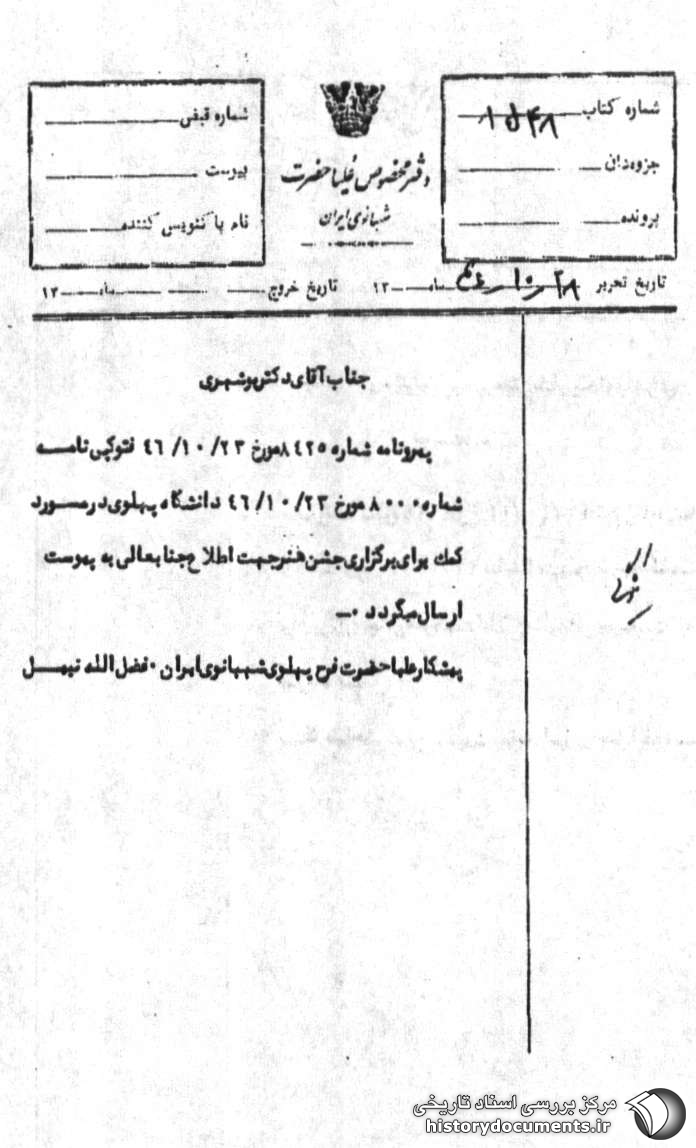 شماره کتاب
جزوه‌دان
پرونده
دفتر مخصوص علیاحضرت
شهبانوی ایران
شماره قبض
پیوست
نام پاکنویس کننده
تاریخ تحریر ۲۸ ر ۱۰ ر ماه ۱۳
تاریخ خروج ماه ۱۳
جناب آقای دکتر بوشهری
پیرو نامه شماره ۸۴۲۵ مورخ ۲۳/ ۱۰/ ۴۶ فتوکپی نامه
شماره ۸۰۰۰ مورخ ۲۳/ ۱۰/ ۴۶ دانشگاه پهلوی در مورد
کمک برای برگزاری جشن هنر جهت اطلاع جنابعالی به پیوست
ارسال میگردد ۰ــ
پیشکار علیاحضرت فرح پهلوی شهبانوی ایران ۰ فضل الله نبیل
مرکز بررسی اسناد تاریخی
historydocuments.ir